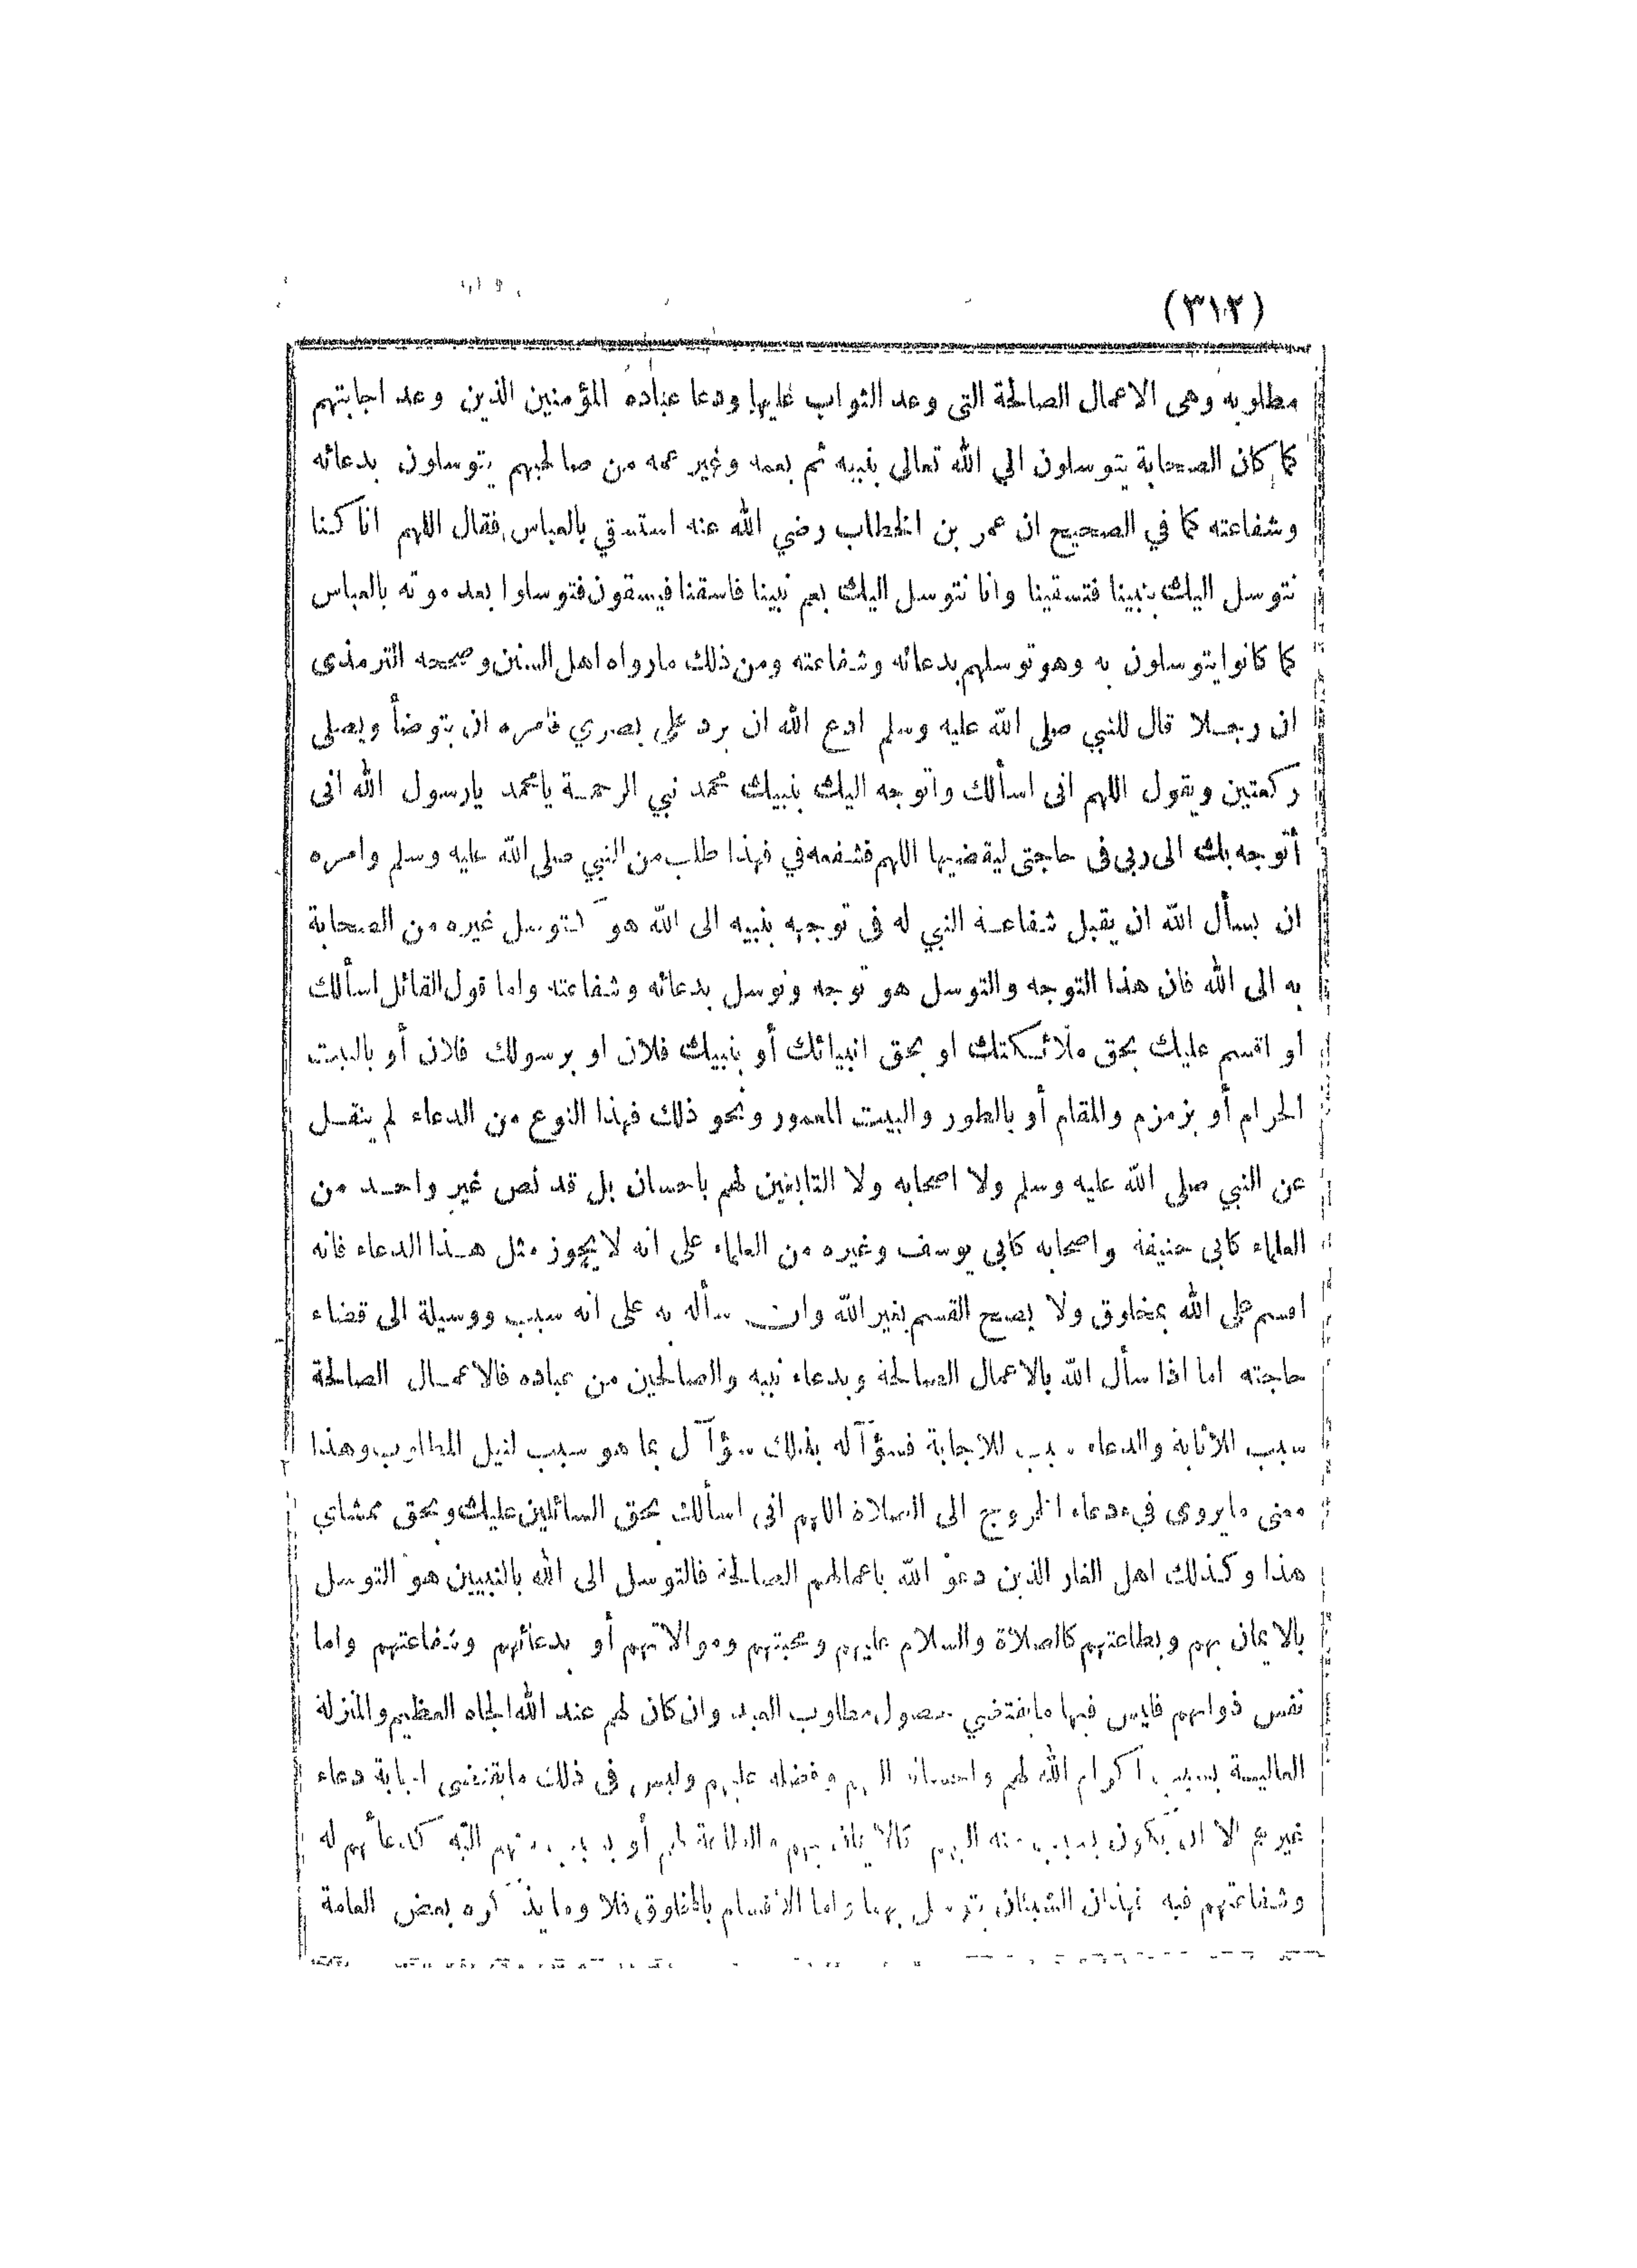 (٣١٢)
مطلوبه وهى الاعمال الصالحة التى وعد الثواب عليها ودعا عباده المؤمنين الذين وعد اجابتهم
كما كان الصحابة يتوسلون الي الله تعالى بنبيه ثم بعمه وغير عمه من صالحيهم يتوسلون بدعائه
وشفاعته كما في الصحيح ان عمر بن الخطاب رضي الله عنه استسقي بالعباس فقال اللهم انا كنا
نتوسل اليك بنبينا فتسقينا وانا نتوسل اليك بعم نبينا فاسقنا فيسقون فتوسلوا بعد موته بالعباس
كما كانوا يتوسلون به وهو توسلهم بدعائه وشفاعته ومن ذلك مارواه اهل السنن وصححه الترمذى
ان رجلا قال للنبي صلى الله عليه وسلم ادع الله ان يرد علي بصري فامره ان يتوضأ ويصلى
ركعتين ويقول اللهم انى اسألك واتوجه اليك بنبيك محمد نبي الرحمة يامحمد يارسول الله انى
أتوجه بك الى ربى فى حاجتى ليقضيها اللهم فشفعه في فهذا طلب من النبي صلى الله عليه وسلم وامره
ان يسأل الله ان يقبل شفاعة النبي له فى توجهه بنبيه الى الله هو كتوسل غيره من الصحابة
به الى الله فان هذا التوجه والتوسل هو توجه وتوسل بدعائه وشفاعته واما قول القائل اسألك
او اقسم عليك بحق ملائكتك او بحق انبيائك أو بنبيك فلان او برسولك فلان أو بالبيت
الحرام أو بزمزم والمقام أو بالطور والبيت المعمور ونحو ذلك فهذا النوع من الدعاء لم ينقل
عن النبي صلى الله عليه وسلم ولا اصحابه ولا التابعين لهم باحسان بل قد نص غير واحد من
العلماء كابى حنيفة واصحابه كابي يوسف وغيره من العلماء على انه لا يجوز مثل هذا الدعاء فانه
اقسم علي الله بمخلوق ولا يصح القسم بغير الله وان سأله به على انه سبب ووسيلة الى قضاء
حاجته اما اذا سأل الله بالاعمال الصالحة وبدعاء نبيه والصالحين من عباده فالاعمال الصالحة
سبب للاثابة والدعاء سبب للاجابة فسؤآله بذلك سؤآل بما هو سبب لنيل المطلوب وهذا
معنى مايروى في دعاء الخروج الى الصلاة اللهم انى اسألك بحق السائلين عليك وبحق ممشاي
هذا وكذلك اهل الغار الذين دعوْ الله باعمالهم الصالحة فالتوسل الى الله بالنبيين هو التوسل
بالايمان بهم وبطاعتهم كالصلاة والسلام عليهم ومحبتهم وموالاتهم أو بدعائهم وشفاعتهم واما
نفس ذواتهم فليس فيها مايقتضي حصول مطلوب العبد وان كان لهم عند الله الجاه العظيم والمنزلة
العالية بسبب اكرام الله لهم واحسانه اليهم وفضله عليهم وليس فى ذلك مايقتضى اجابة دعاء
غيرهم الا ان يكون بسبب منه اليهم كالايمان بهم والطاعة لهم أو بسبب منهم اليه كدعائهم له
وشفاعتهم فيه فهذان الشيئان يتوسل بهما واما الاقسام بالمخلوق فلا وما يذكره بعض العامة